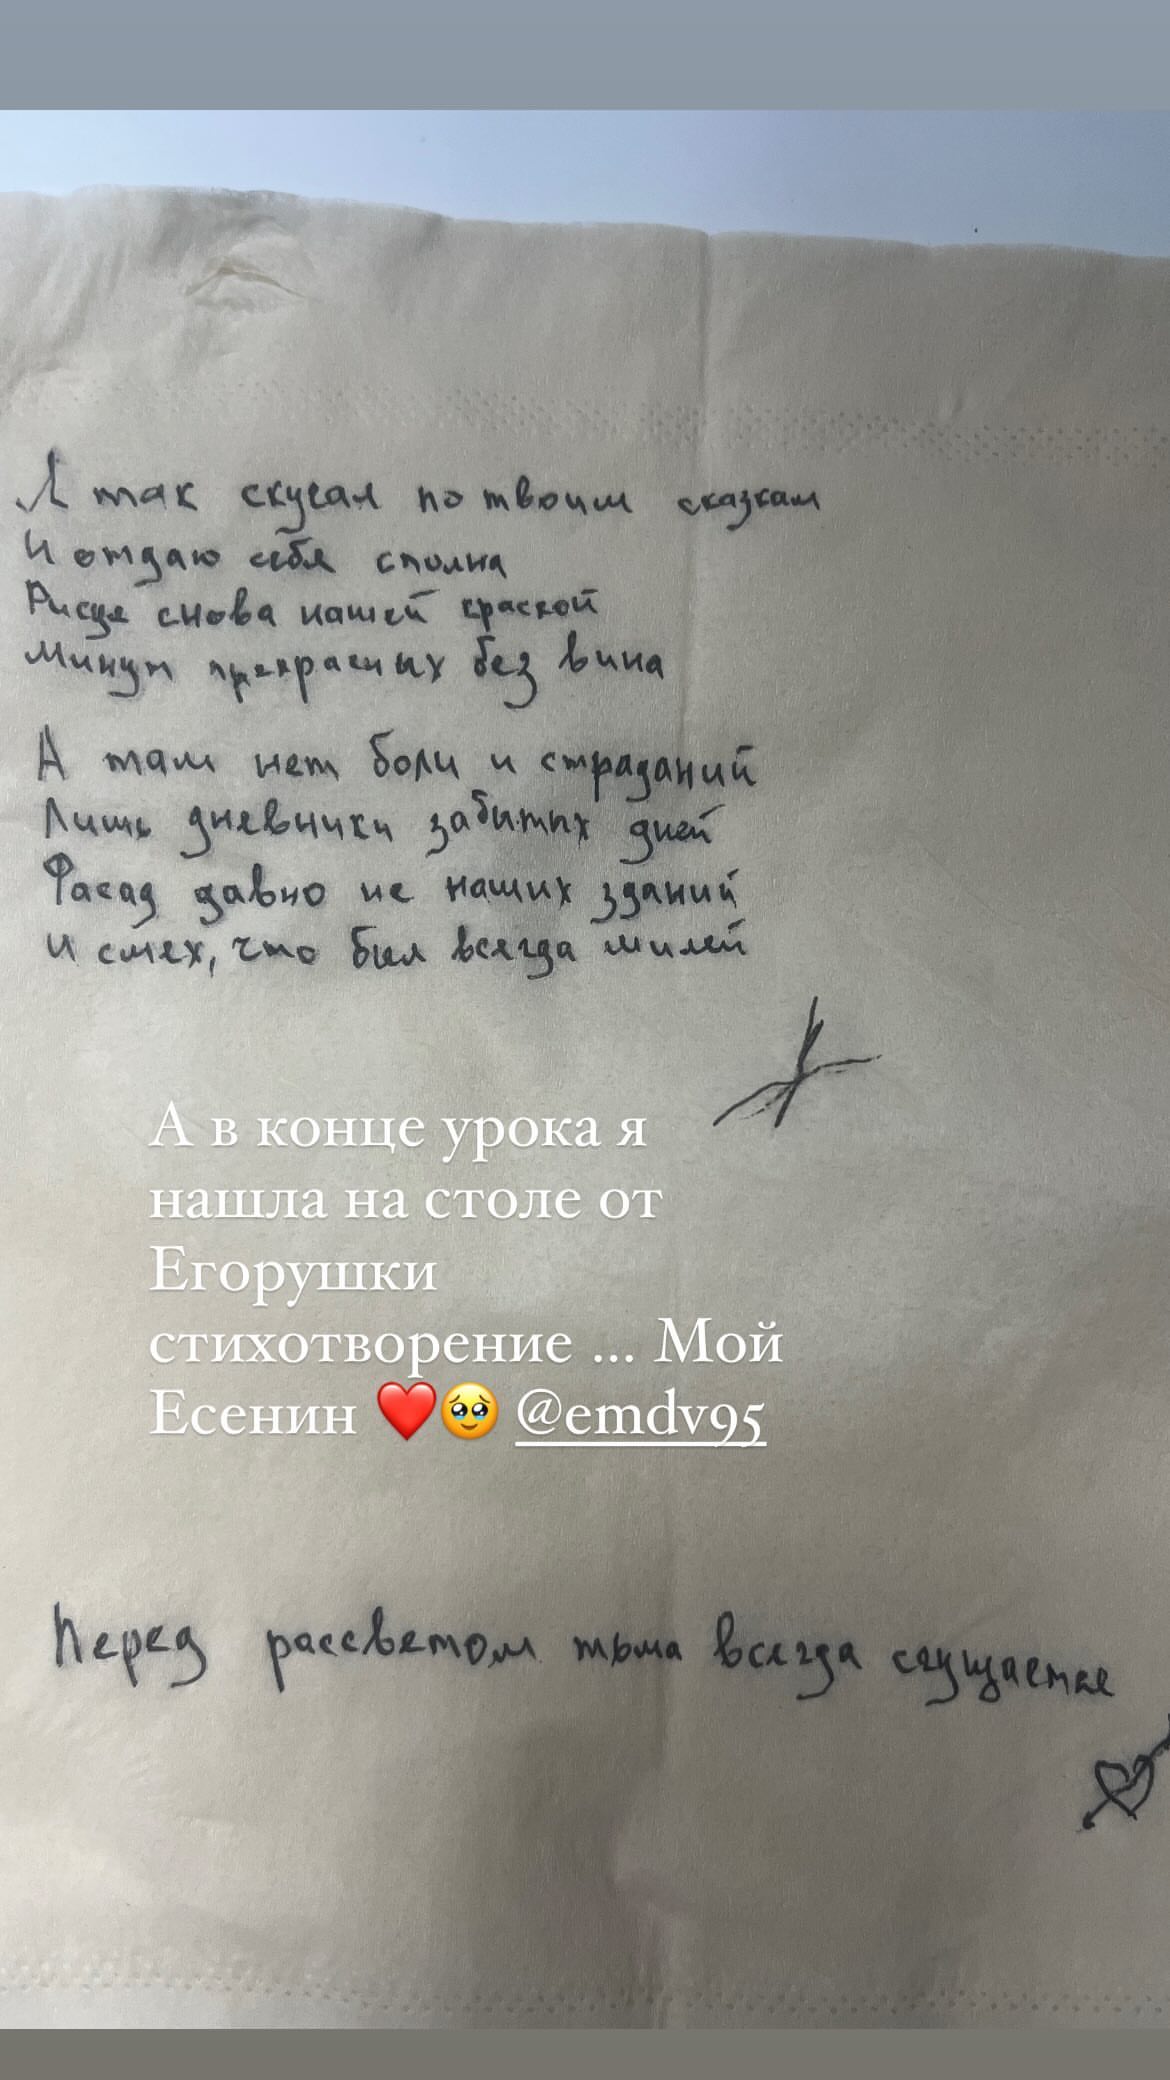 Я так скучал по твоим сказкам
И отдаю себя сполна
Рисуя снова нашей краской
Минут прекрасных без вина
А там нет боли и страданий
Лишь дневники забытых дней
Фасад давно не наших зданий
И смех, что был всегда милей
А в конце урока я
нашла на столе от
Егорушки
стихотворение ... Мой
Есенин ❤️🥹 @emdv95
Перед рассветом тьма всегда сгущается